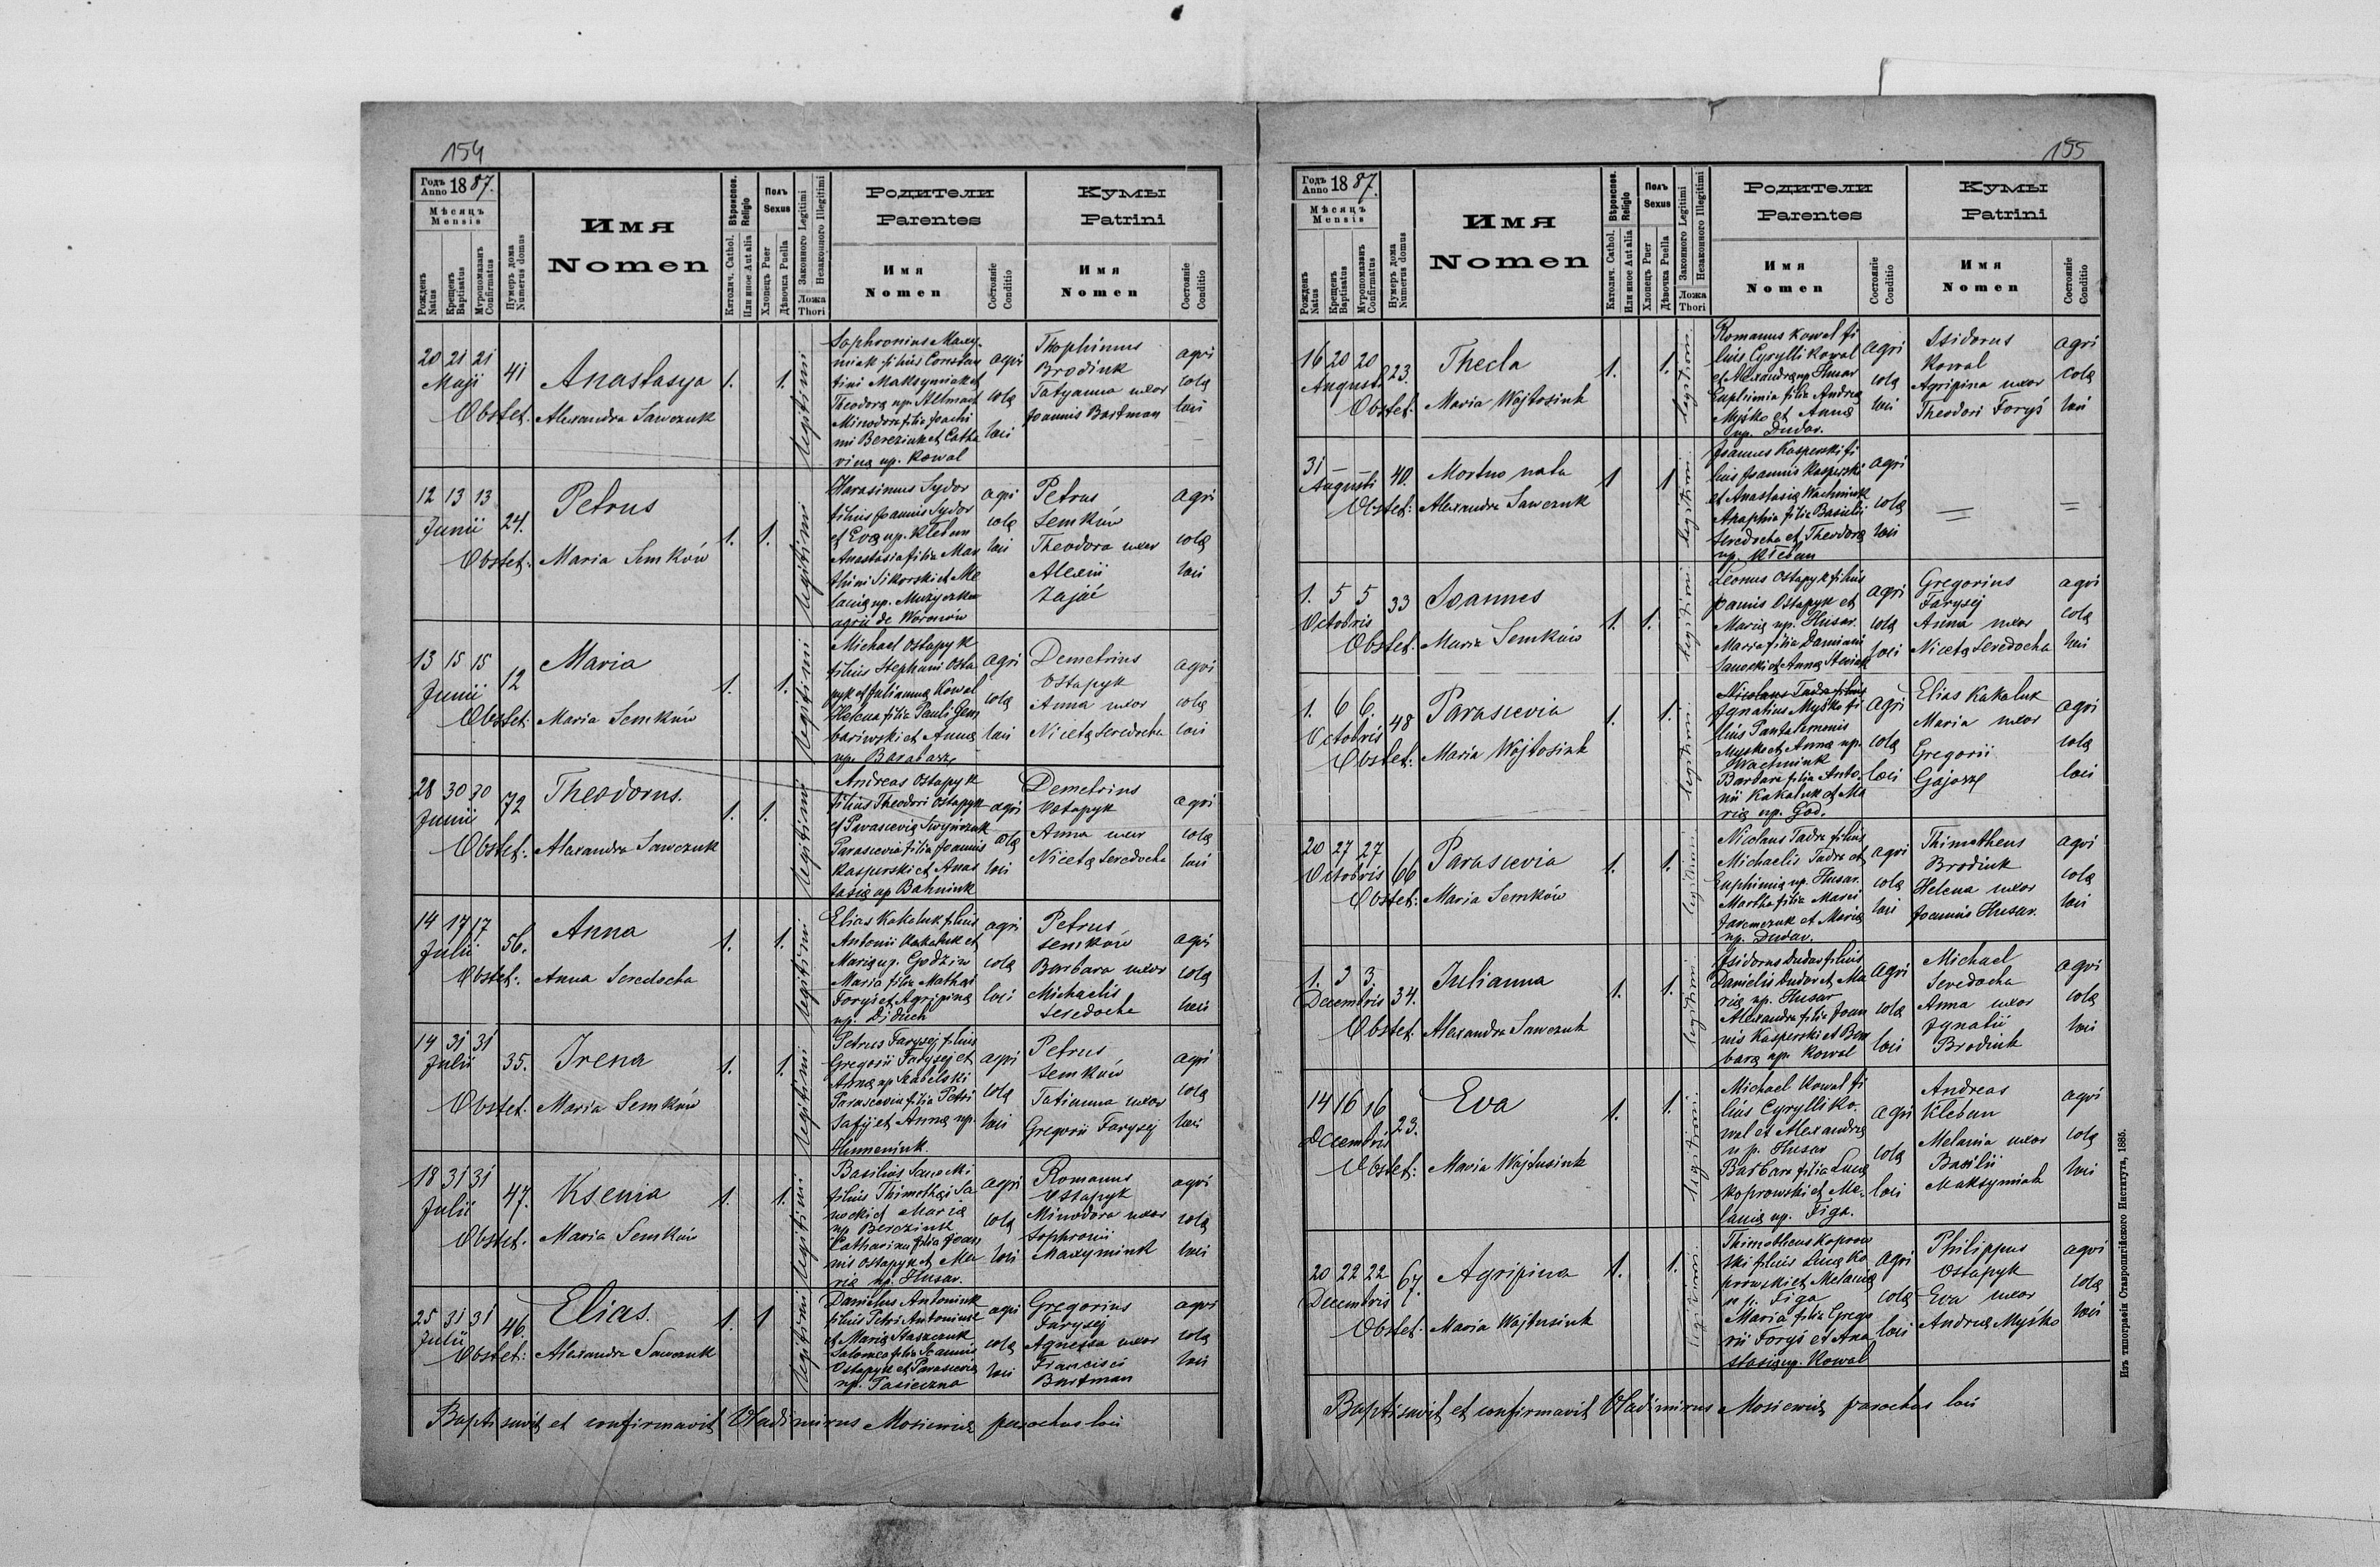 154
Годъ Anno 1887.
Мѣсяцъ
Mensis
Рожденъ Natus
Крещенъ Baptisatus
Муропомазанъ Confirmatus
Нумеръ дома Numerus domus
Имя
Nomen
Вѣроиспов. Religio
Католич. Cathol.
Или иное Aut alia
Полъ
Sexus
Хлопецъ Puer
Дѣвочка Puella
Законного Legitimi
Незаконного Illegitimi
Ложа
Thori
Родители
Parentes
Имя
Nomen
Состояніе
Conditio
Кумы
Patrini
Имя
Nomen
Состояніе
Conditio
20 21 21
Maji
41
Anastasya
Obstet. Alexandra Sawczuk
1. 1.
legitimi
Sophronius Maxy-
niak filius Constan
tini Maksymiak et
Theodorą np.
Minodora filia Joachi
mi Bereziuk et Catha
riną np. Kowal
agri
colą
loci
Thophimus
Brodiuk
Tatyanna uxor
Joannis Bardman
agri
colą
loci
12 13 13
Junii
24.
Petrus
Obstet. Maria Semków
1. 1.
legitimi
Harasimus Sydor
filius Joannis Sydor
et Evą np. Kleban
Anastasia filia Max
thimi Sikorski et Me
lanią np. Muzyczka
agrii de Woronów
agri
colą
loci
Petrus
Semków
Theodora uxor
Alexii
Zając
agri
colą
loci
13 15 15
Junii
12
Maria
Obstet. Maria Semków
1. 1.
legitimi
Michael Ostapyk
filius Stephani Osta
pyk et Julianną Kowal
Helena filia Pauli Gem
bariwski et Anną
np. Barabasz
agri
colą
loci
Demetrius
Ostapyk
Anna uxor
Nicetą Seredocha
agri
colą
loci
28 30 30
Junii
72
Theodorus.
Obstet. Alexandra Sawczuk
1. 1.
legitimi
Andreas Ostapyk
filius Theodori Ostapyk
et Parascevią
Parascevia filia Joannis
Kasperski et Anas
tasią np Bahniuk
agri
colą
loci
Demetrius
Ostapyk
Anna uxor
Nicetą Seredocha
agri
colą
loci
14 17 17
Julii
56.
Anna
Obstet. Anna Seredocha
1. 1.
legitimi
Elias Kakaluk filius
Antonii Kakaluk et
Marią np. Godziw
Maria filia Mathei
Foryś et Agripiną
np. Diduch
agri
colą
loci
Petrus
Semków
Barbara uxor
Michaelis
Seredocha
agri
colą
loci
14 31 31
Julii
35.
Irena
Obstet. Maria Semków
1. 1.
legitimi
Petrus Farysej filius
Gregorii Farysej et
Anną np Szabelski
Parascevia filia Petri
Safij et Anną np.
Humeniuk.
agri
colą
loci
Petrus
Semków
Tatianna uxor
Gregorii Farysej
agri
colą
loci
18 31 31
Julii
47.
Ksenia
Obstet. Maria Semków
1. 1.
legitimi
Basilius Sanocki
filius Thimothei Sa
nocki et Marią
np Bereziuk
Catharina filia Joan
nis Ostapyk et Ma
rią np. Husar.
agri
colą
loci
Romanus
Ostapyk
Minodora uxor
Sophronii
Maxymiuk
agri
colą
loci
25 31 31
Julii
46.
Elias.
Obstet. Alexandra Sawczuk
1. 1
legitimi
Danielus Antoniuk
filius Petri Antoniuk
et Marią Staszczuk
Salomea filia Joannis
Ostapyk et Parascevią
np. Pasieczna
agri
colą
loci
Gregorius
Farysej
Agnessa uxor
Francisci
Bardman
agri
colą
loci
Baptisavit et confirmavit Vladimirus Mosiewicz parochus loci
155
Годъ Anno 1887.
Мѣсяцъ
Mensis
Рожденъ Natus
Крещенъ Baptisatus
Муропомазанъ Confirmatus
Нумеръ дома Numerus domus
Имя
Nomen
Вѣроиспов. Religio
Католич. Cathol.
Или иное Aut alia
Полъ
Sexus
Хлопецъ Puer
Дѣвочка Puella
Законного Legitimi
Незаконного Illegitimi
Ложа
Thori
Родители
Parentes
Имя
Nomen
Состояніе
Conditio
Кумы
Patrini
Имя
Nomen
Состояніе
Conditio
16 20 20
August.
23.
Thecla
Obstet. Maria Wójtosiuk
1. 1.
legitimi
Romanus Kowal fi
lius Cyrylli Kowal
et Alexandrą np Husar
Euphimia filia Andreą
Myśko et Anną
np. Dudar.
agri
colą
loci
Isidorus
Kowal
Agripina uxor
Theodori Foryś
agri
colą
loci
31 – –
Augusti
40.
Mortuo nata
Obstet: Alexandra Sawczuk
1 1
legitimi
Joannes Kasperski fi
lius Joannis Kasperski
et Anastasią Wachniuk
Anaphia filia Basilii
Seredocha et Theodorą
np. Kleban
agri
colą
loci
=
=
1. 5 5
Octobris
33
Joannes
Obstet. Maria Semków
1. 1.
legitimi
Leonus Ostapyk filius
Joannis Ostapyk et
Marią np. Husar.
Maria filia Damiani
Sanocki et Anną
agri
colą
loci
Gregorius
Farysej
Anna uxor
Nicetą Seredocha
agri
colą
loci
1. 6 6.
Octobris
48
Parascevia
Obstet: Maria Wójtosiuk
1. 1.
legitimi
Nicolaus Tadra filius
Ignatius Myśko fi
lius Pantalimonis
Myśko et Anną np.
Wachniuk
Barbara filia Anto-
nii Kakaluk et Ma
rią np. God.
agri
colą
loci
Elias Kakaluk
Maria uxor
Gregorii
Gajosz
agri
colą
loci
20 27 27
Octobris
66
Parascevia
Obstet: Maria Semków
1. 1.
legitimi
Nicolaus Tadra filius
Michaelis Tadra et
Euphimią np. Husar.
Martha filia Marci
Jaremczuk et Marią
np. Dudar.
agri
colą
loci
Thimotheus
Brodiuk
Helena uxor
Joannis Husar.
agri
colą
loci
1. 3 3.
Decembris
34.
Julianna
Obstet. Alexandra Sawczuk
1. 1.
legitimi
Isidorus Dudar filius
Danielis Dudar et Ma
rią np. Husar
Alexandra filia Joan
nis Kasperski et Bar
barą np. Kowal
agri
colą
loci
Michael
Seredocha
Anna uxor
Ignatii
Brodiuk
agri
colą
loci
14 16 16
Decembris
23.
Eva
Obstet: Maria Wójtusiuk
1. 1.
legitimi
Michael Kowal fi
lius Cyrylli Ko-
wal et Alexandrą
np. Husar
Barbara filia Lucą
Koprowski et Me-
lanią np. Figa.
agri
colą
loci
Andreas
Kleban
Melania uxor
Basilii
Maksymiak
agri
colą
loci
20 22 22
Decembris
67.
Agripina
Obstet. Maria Wójtusiuk
1. 1.
legitimi
Thimotheus Koprow
ski filius Lucą Ko
prowski et Melanią
np. Figa
Maria filia Grego
rii Foryś et Ana
stasią np. Kowal
agri
colą
loci
Philippus
Ostapyk
Eva uxor
Andreą Myśko
agri
colą
loci
Baptisavit et confirmavit Vladimirus Mosiewicz parochus loci
Изъ типографіи Ставропигійского Института, 1885.